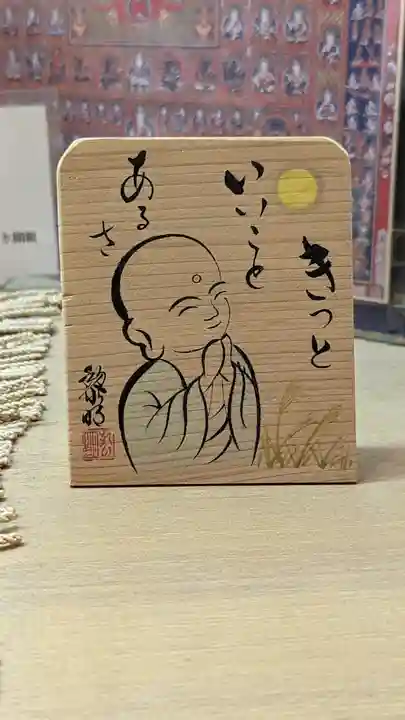 きっと
いいこと
あるさ
黎明